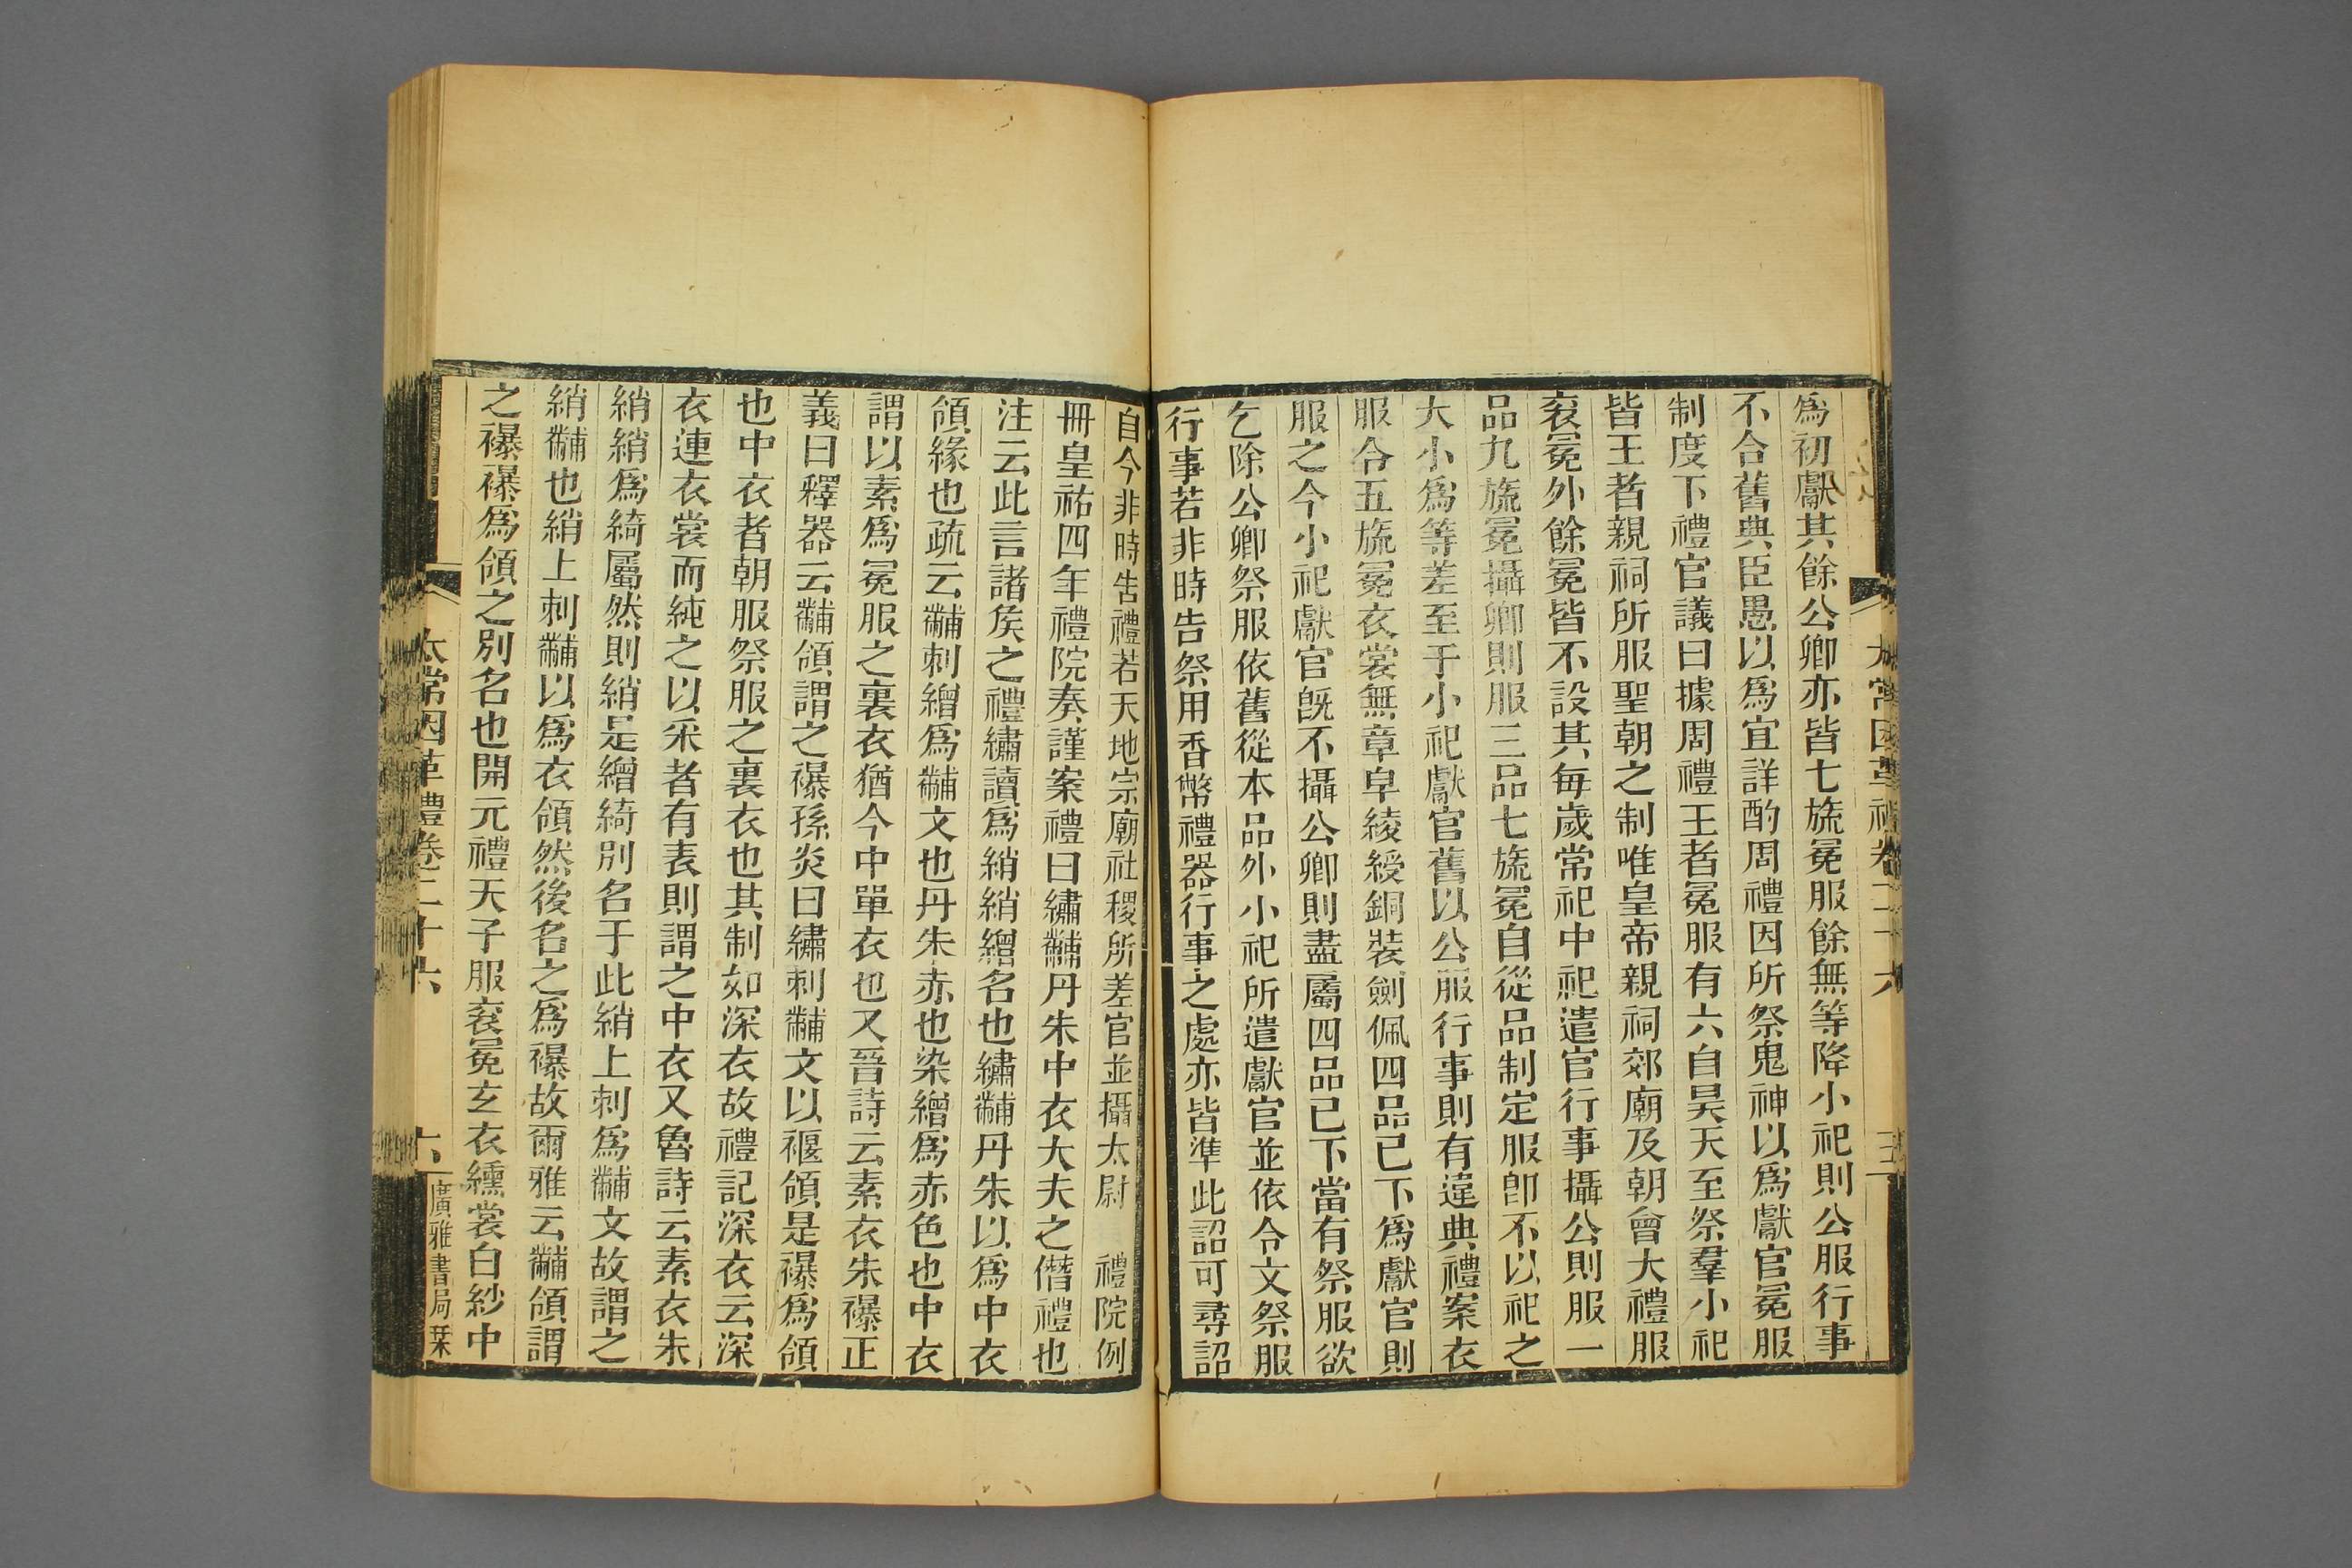 爲初獻其餘公卿亦皆七旒冕服餘無等降小祀則公服行事
不合舊典臣愚以爲宜詳酌周禮因所祭鬼神以爲獻官冕服
制度下禮官議曰據周禮王者冕服有六自昊天至祭羣小祀
皆王者親祠所服聖朝之制唯皇帝親祠郊廟及朝會大禮服
袞冕外餘冕皆不設其每歲常祀中祀遣官行事攝公則服一
品九旒冕攝卿則服三品七旒冕自從品制定服卽不以祀之
大小爲等差至于小祀獻官舊以公服行事則有違典禮案衣
服令五旒冕衣裳無章皁綾綬銅裝劍佩四品已下爲獻官則
服之今小祀獻官旣不攝公卿則盡屬四品已下當有祭服欲
乞除公卿祭服依舊從本品外小祀所遣獻官並依令文祭服
行事若非時告祭用香幣禮器行事之處亦皆準此詔可尋詔
自今非時告禮若天地宗廟社稷所差官並攝太尉 禮院例
冊皇祐四年禮院奏謹案禮曰繡黼丹朱中衣大夫之僭禮也
注云此言諸矦之禮繡讀爲綃綃繒名也繡黼丹朱以爲中衣
領緣也疏云黼刺繒爲黼文也丹朱赤也染繒爲赤色也中衣
謂以素爲冕服之裏衣猶今中單衣也又晉詩云素衣朱襮正
義曰釋器云黼領謂之襮孫炎曰繡刺黼文以褗領是襮爲領
也中衣者朝服祭服之裏衣也其制如深衣故禮記深衣云深
衣連衣裳而純之以采者有表則謂之中衣又魯詩云素衣朱
綃綃爲綺屬然則綃是繒綺別名于此綃上刺爲黼文故謂之
綃黼也綃上刺黼以爲衣領然後名之爲襮故爾雅云黼領謂
之襮襮爲領之別名也開元禮天子服袞冕玄衣纁裳白紗中
太常因革禮卷二十六
六
廣雅書局栞